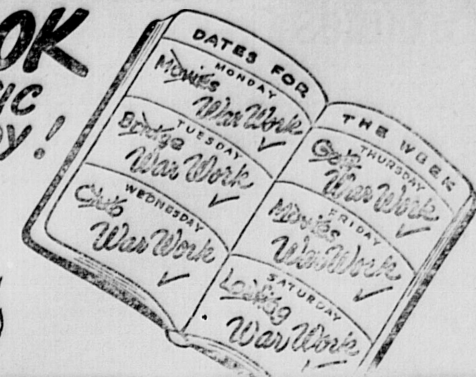 OK
IC
Y!
DATES FOR
MONDAY
Movies
War Work
TUESDAY
Bridge
War Work
WEDNESDAY
Club
War Work
THE WEEK
THURSDAY
War Work
FRIDAY
Movies
War Work
SATURDAY
Loafing
War Work